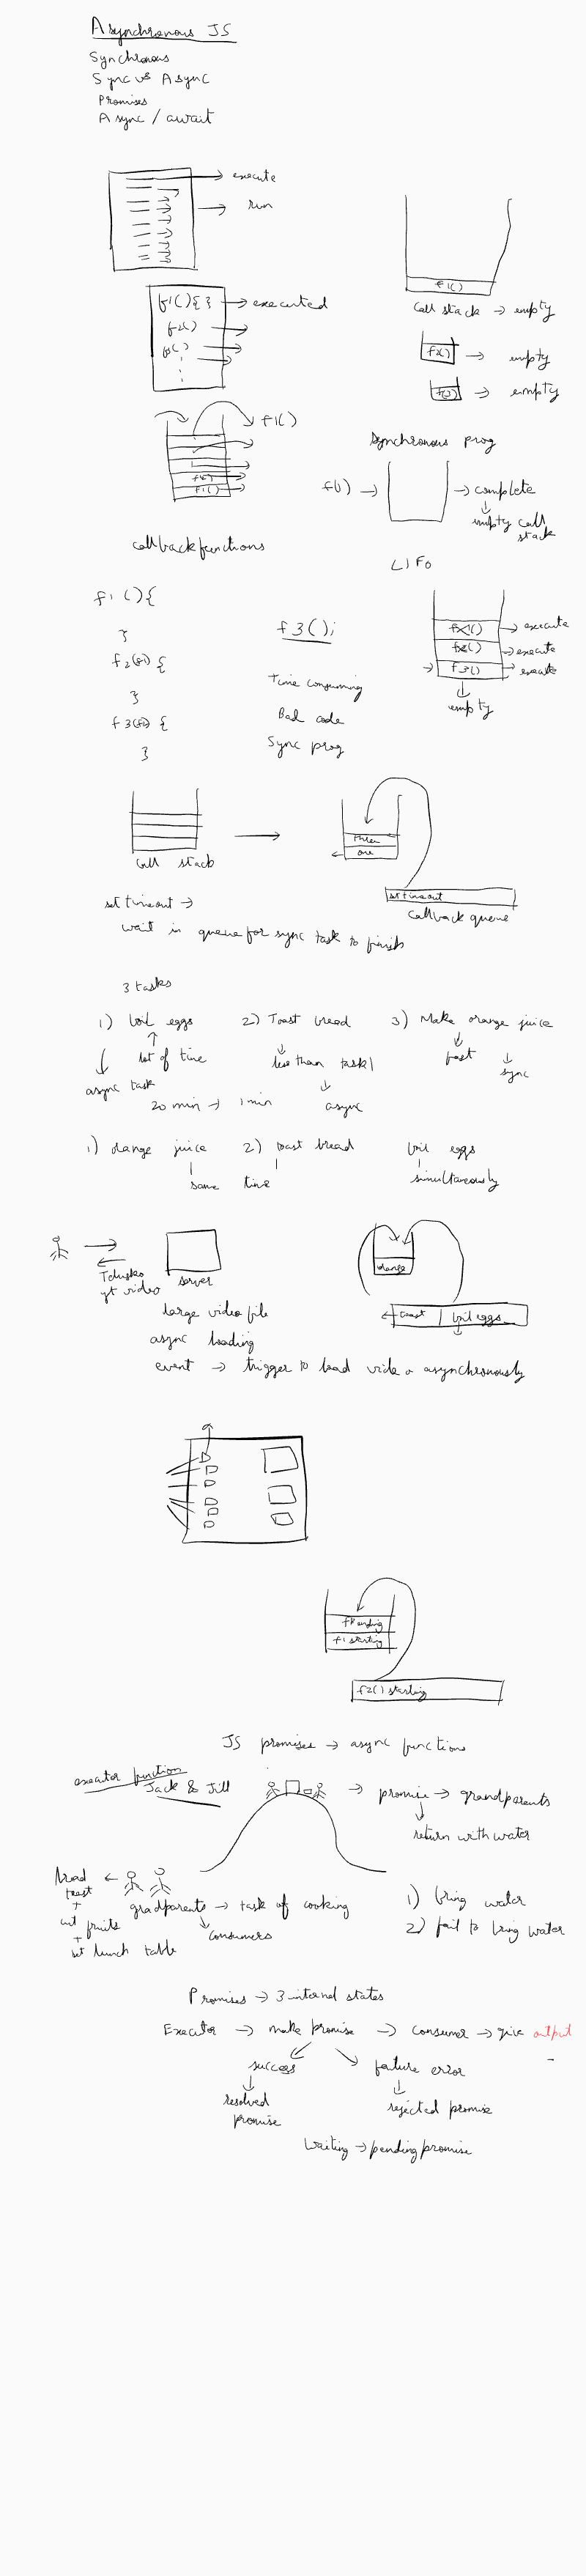 Asynchronous JS
Synchronous
Sync vs Async
Promises
Async / await
execute
run
f1()
call stack → empty
f1(){ } → executed
f2()
f3()
f2() → empty
f3() → empty
f1()
f2()
f1()
Synchronous prog
f1) → → complete
empty call
stack
callback functions
LIFO
f1 (){
}
f2(f1) {
}
f3(f2) {
}
f3();
Time consuming
Bad code
Sync prog
f1() → execute
f2() → execute
→ f3() → execute
empty
call stack
three
one
set timeout
callback queue
set timeout →
wait in queue for sync task to finish
3 tasks
1) boil eggs 2) Toast bread 3) Make orange juice
lot of time less than task1 fast
async task sync
20 min → 1 min async
1) orange juice 2) toast bread boil eggs
same time simultaneously
Telusko
yt video
server
orange
toast | boil eggs
large video file
async loading
event → trigger to load video asynchronously
f1 ending
f1 starting
f2() starting
JS promises → async functions
executor function
Jack & Jill
→ promise → grandparents
return with water
bread ←
toast
+
cut fruits
+
set lunch table
gradparents → task of cooking
consumers
1) bring water
2) fail to bring water
Promises → 3 internal states
Executor → make promise → consumer → give output
success failure error
resolved
promise
rejected promise
Waiting → pending promise